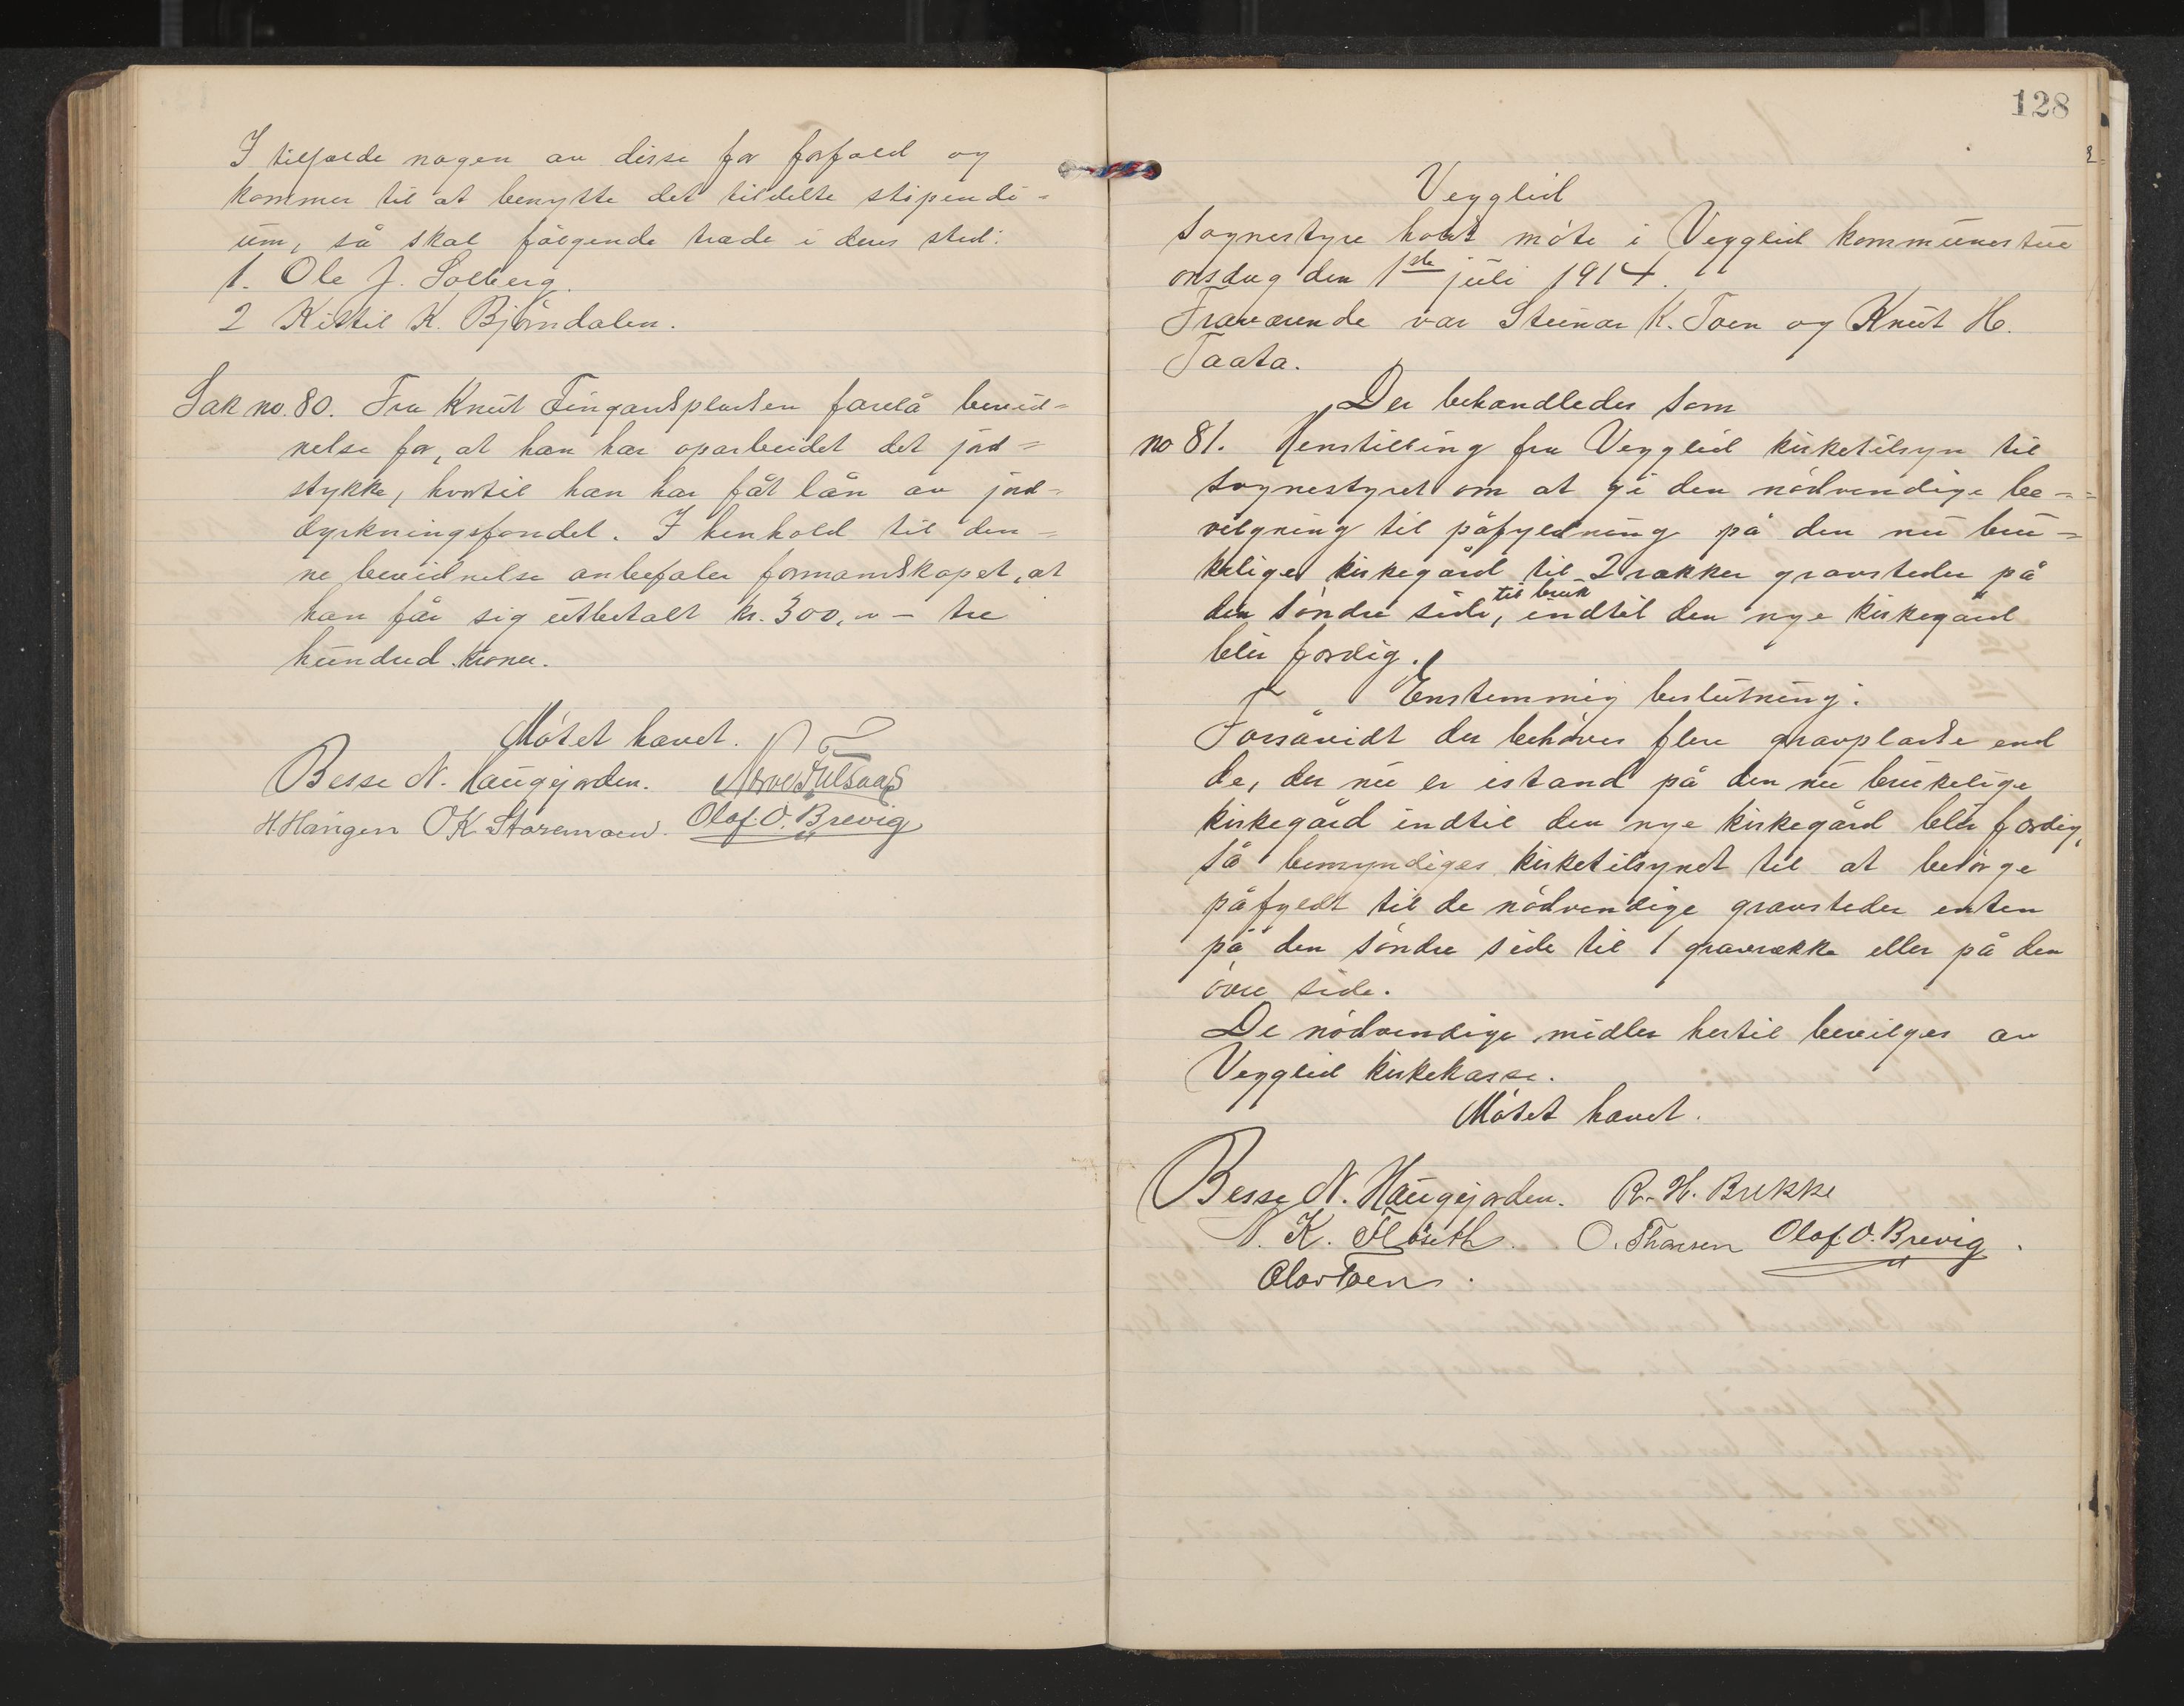 I tilfælde nogen av disse får forfald og
kommer til at benytte det tildelte stipendi=
um, så skal følgende træde i deres sted:
1. Ole J. Solberg.
2 Kittil K. Bjørndalen.
Sak no. 80. Fra Knut Fingardsplassen forelå bevid=
nelse for, at han har oparbeidet det jord=
stykke, hvortil han har fåt lån av jord=
dyrkningsfondet. I henhold til den=
ne bevidnelse anbefaler formandskapet, at
han får sig utbetalt kr. 300,00 - tre
hundred kroner.
Møtet hævet.
Besse N. Haugejorden.
H. Haugen O K Storemoen. Olaf. O. Brevig
128
Vegglid
Sognestyre holdt møte i Vegglid kommunestue
onsdag den 1ste juli 1914.
Fraværende var Steinar K. Toen og Knut H.
Taata.
Der behandledes som
no 81. Henstilling fra Vegglid kirketilsyn til
sognestyret om at gi den nødvendige be=
vilgning til påfyldning på den nu bru=
kelige kirkegård til 2 rækker gravsteder på
den søndre side, til bruk indtil den nye kirkegård
blir færdig.
Enstemmig beslutning:
Forsåvidt der behøves flere gravplasse end
de, der nu er istand på den nu brukelige
kirkegård indtil den nye kirkegård blir færdig,
så bemyndiges kirketilsynet til at besørge
påfyldt til de nødvendige gravsteder enten
på den søndre side til 1 gravrække eller på den
øvre side.
De nødvendige midler hertil bevilges av
Vegglid kirkekasse.
Møtet hævet.
Besse N. Haugejorden. R. H. Brekke
N. K. Flåseth. O. Thorsen Olaf. O. Brevig.
Olav Toen.